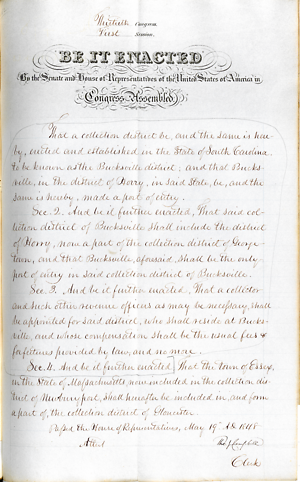 Thirtieth Congress
First Session
BE IT ENACTED
By the Senate and House of Representatives of the United States of America in
Congress Assembled
That a collection district be, and the same is here-
by, created and established in the State of South Carolina
to be known as the Bucksville district; and that Bucks-
ville, in the district of Horry, in said State, be, and the
same is hereby, made a port of entry.
Sec. 2. And be it further enacted, That said col-
lection district of Bucksville shall include the district
of Horry, now a part of the collection district of George-
town, and that Bucksville, aforesaid, shall be the only
port of entry in said collection district of Bucksville.
Sec. 3. And be it further enacted, That a collector
and such other revenue officers as may be necessary, shall
be appointed for said district, who shall reside at Bucks-
ville, and whose compensation shall be the usual fees &
forfeitures provided by law, and no more.
Sec. 4. And be it further enacted, That the town of Essex,
in the State of Massachusetts, now included in the collection dis-
trict of Newburyport, shall hereafter be included in, and form
a part of, the collection district of Gloucester.
Passed the House of Representatives, May 19th 1848
Attest
Campbell
Clerk